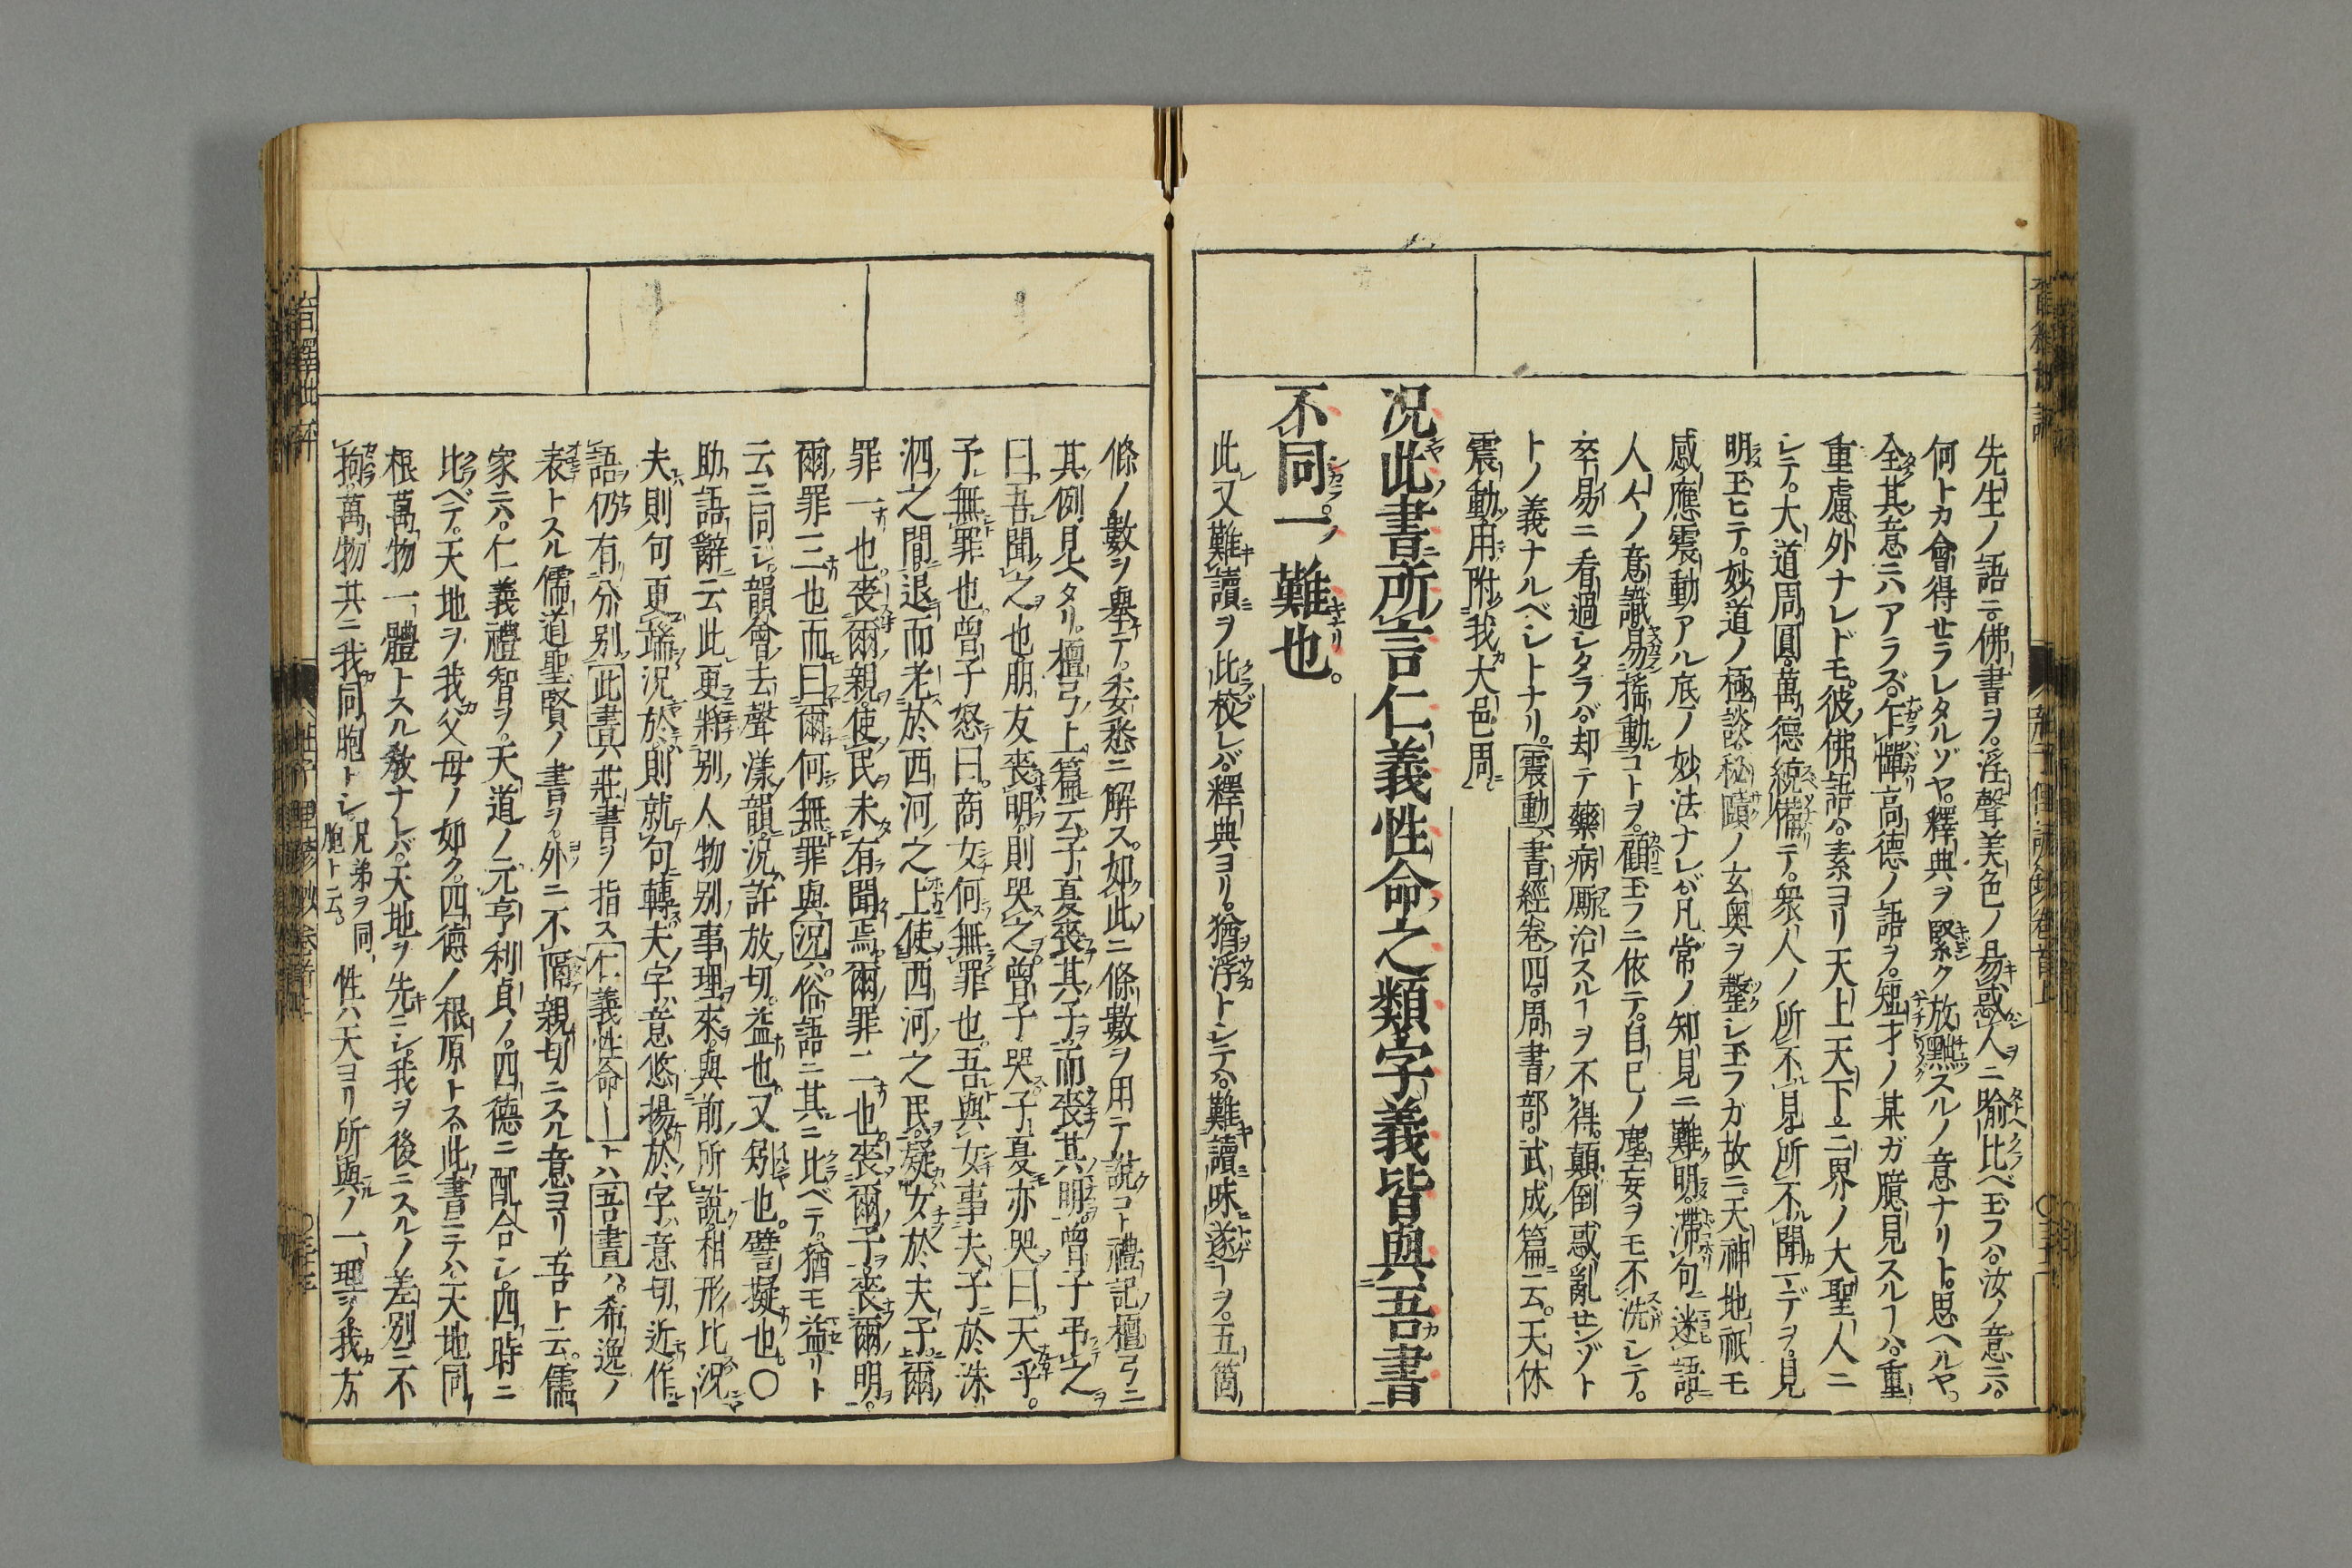 先生ノ語ニ。佛書ヲ。淫聲美色ノ易惑人ヲニ喩比ベ玉フハ。汝ノ意ニハ。
何トカ會得セラレタルゾヤ。釋典ヲ緊ク放黜スルノ意ナリト。思ヘルヤ。
全其意ニハアラズ。乍憚高德ノ語ヲ。短才ノ某ガ臆見スルヿハ。重
重慮外ナレドモ。彼佛語ハ。素ヨリ天上天下。三界ノ大聖人ニ
シテ。大道周圓。萬德統備テ。衆人ノ所不見。所不聞マデヲ。見
明玉ヒテ。妙道ノ極談。秘賾ノ玄奥ヲ罄シ玉フガ故ニ。天神地祇モ
感應震動アル底ノ妙法ナレバ。凡常ノ知見ニ難明。滯句迷語。
人人ノ意識。易搖動コトヲ。顧玉フニ依テ。自己ノ塵妄ヲモ不洗シテ。
卒易ニ看過シタラバ。却テ藥病厮治スルヿヲ不得。顛倒惑亂センゾト
トノ義ナルベシトナリ。震動、書經卷四。周書部。武成篇ニ云。天休
震動。用附我大邑周
况此書所言仁義性命之類字義皆與吾書
不同一難也。
此又難讀ヲ比校レバ。釋典ヨリ。猶浮トシテハ。難讀味遂ヿヲ。五箇
條ノ數ヲ舉テ。委悉ニ解ス。如此ニ條數ヲ用テ說コト禮記檀弓ニ
其例見ヘタリ。檀弓上篇云。子夏喪其子。而喪其明。曾子弔之
曰。吾聞之也朋友喪明。則哭之。曾子哭。子夏亦哭曰。天乎。
予無罪也。曾子怒曰。商女何無罪也。吾與女事夫子於洙
泗之間。退而老於西河之上。使西河之民。疑女於夫子。爾
罪一也。喪爾親。使民未有聞焉。爾罪二也。喪爾子。喪爾明。
爾罪三也而曰。爾何無罪與况ハ俗語ニ其ニ比ベテ。猶モ益リト
云ニ同ジ。韻會去聲漾韻。况許放切。益也。又矧也。譬擬也。〇
助語辭云此更將別人物別事理來。與前所說相形比况
夫則句更端况於則就句轉夫字意悠揚於字意切近作
語仍有分別此書ハ莊書ヲ指ス仁義性命ートハ吾書ハ。希逸ノ
表トスル儒道聖賢ノ書ヲ。外ニ不隔親切ニスル意ヨリ吾ト云。儒
家ニハ。仁義禮智ヲ。天道ノ元亨利貞ノ。四德ニ配合シ。四時ニ
比ベテ。天地ヲ我父母ノ如ク。四德ノ根原トス。此書ニテハ。天地同
根萬物一體トスル敎ナレバ。天地ヲ先ニシ。我ヲ後ニスルノ差別ニ不
拘。萬物共ニ我同胞トシ兄弟ヲ同胞ト云。性ハ天ヨリ所與ノ一理ヲ。我方